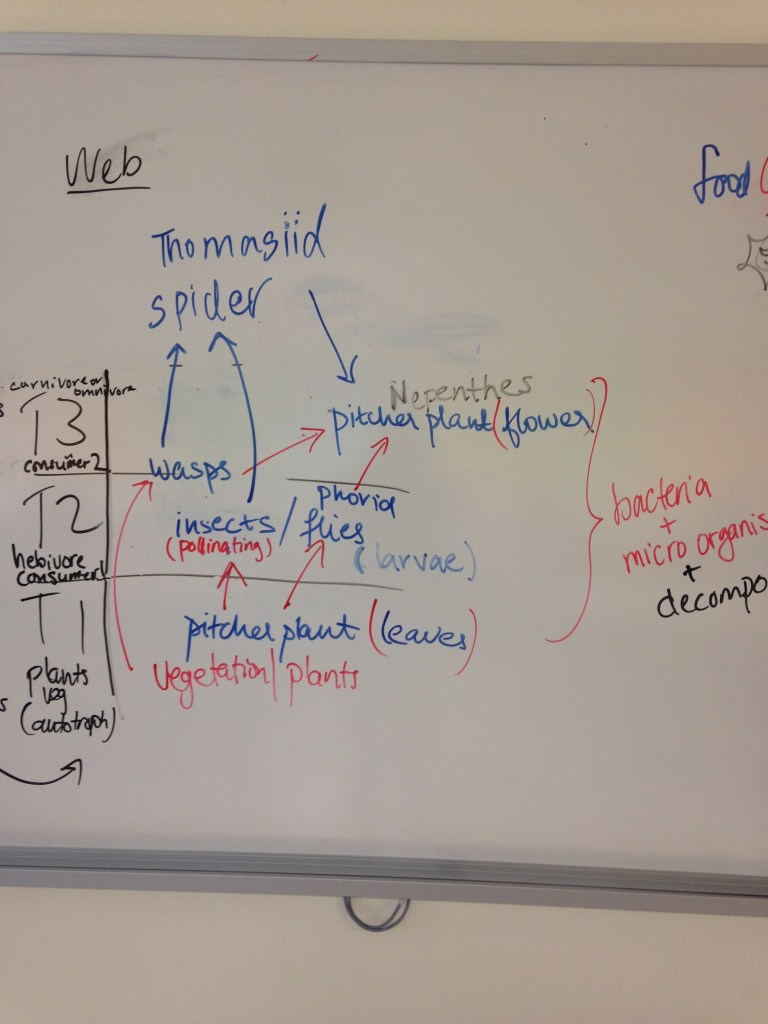 Web
food
Thomasiid
spider
carnivore or
omnivore
T3
consumer 2
Nepenthes
pitcher plant (flower)
wasps
T2
hebivore
consumer 1
phorid
insects / flies
(pollinating)
(larvae)
bacteria
+
micro organis
+
decompo
T1
plants
veg
(autotroph)
pitcher plant (leaves)
vegetation / plants